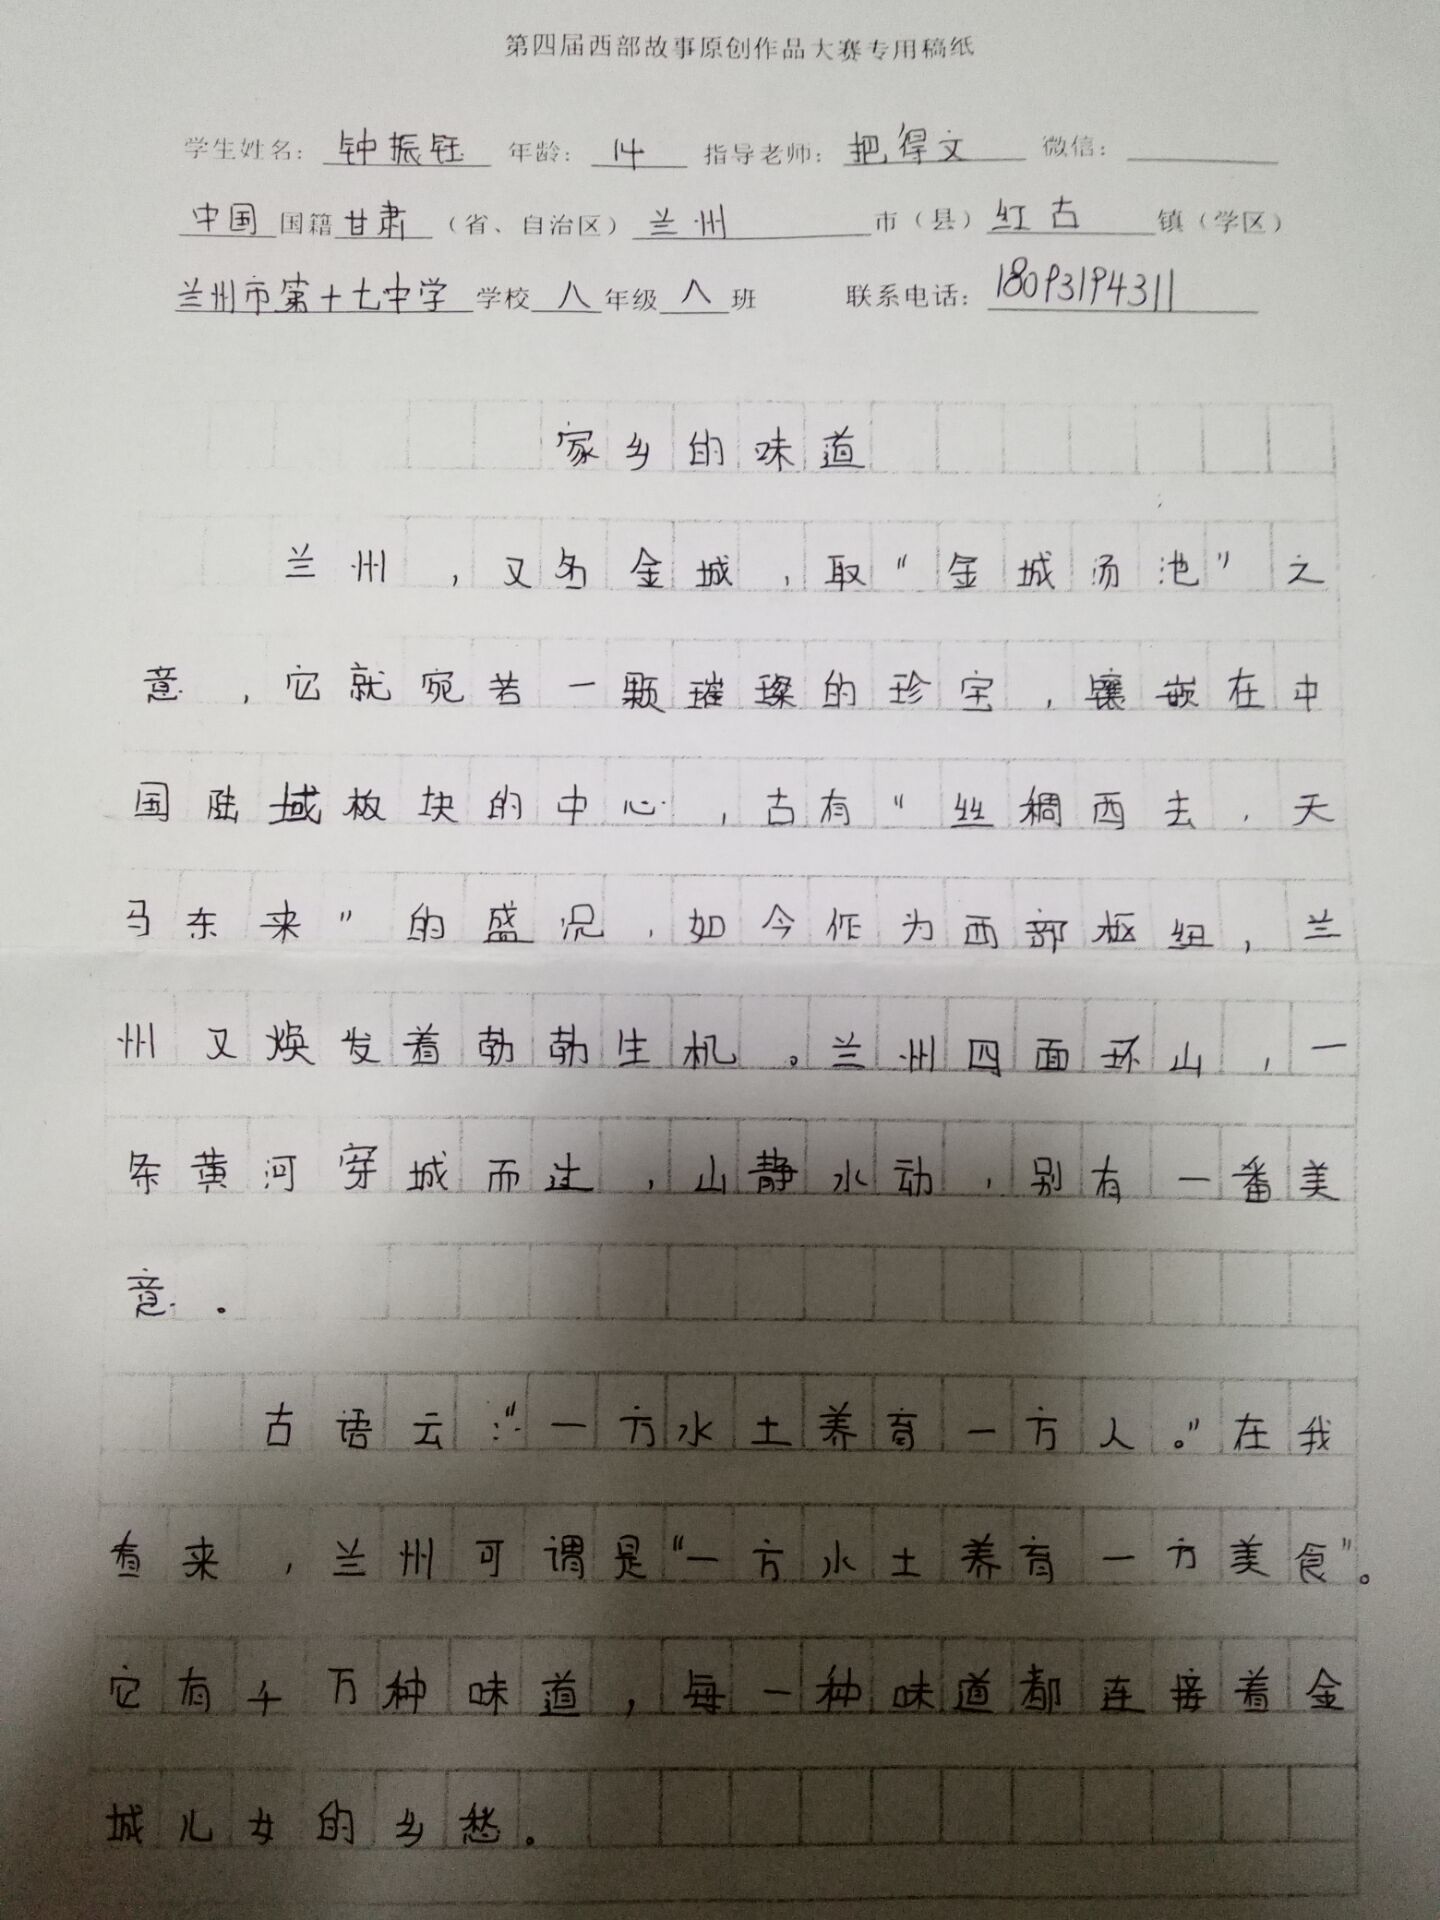 第四届西部故事原创作品大赛专用稿纸
学生姓名：钟振钰 年龄：14 指导老师：把得文 微信：
中国国籍甘肃（省、自治区）兰州市（县）红古镇（学区）
兰州市第十七中学学校八年级八班 联系电话：18093194311
家乡的味道
兰州，又名金城，取“金城汤池”之
意，它就宛若一颗璀璨的珍宝，镶嵌在中
国陆域板块的中心，古有“丝稠西去，天
马东来”的盛况，如今作为西部枢纽，兰
州又焕发着勃勃生机。兰州四面环山，一
条黄河穿城而过，山静水动，别有一番美
意。
古语云：“一方水土养育一方人。”在我
看来，兰州可谓是“一方水土养育一方美食”。
它有千万种味道，每一种味道都连接着金
城儿女的乡愁。